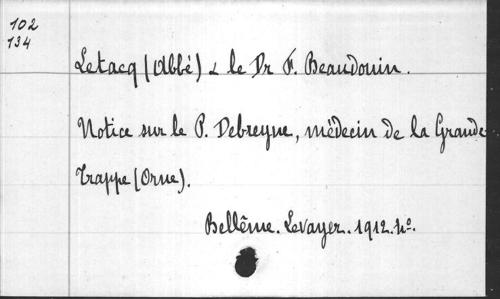 102
134
Letacq (Abbé) & le Dr F. Beaudouin.
Notice sur le P. Debreyne, médecin de la Grande
Trappe (Orne).
Bellême. Levayer. 1912. 4°.